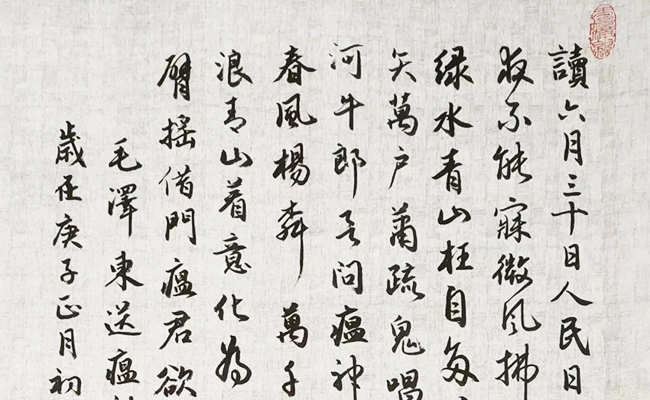 讀六月三十日人民日
夜不能寐微风拂
绿水青山枉自多
矢萬户蕭疏鬼唱
河牛郎问瘟神
春風楊柳萬千
浪青山着意化為
臂摇借問瘟君欲
毛澤東送瘟
歲在庚子正月初